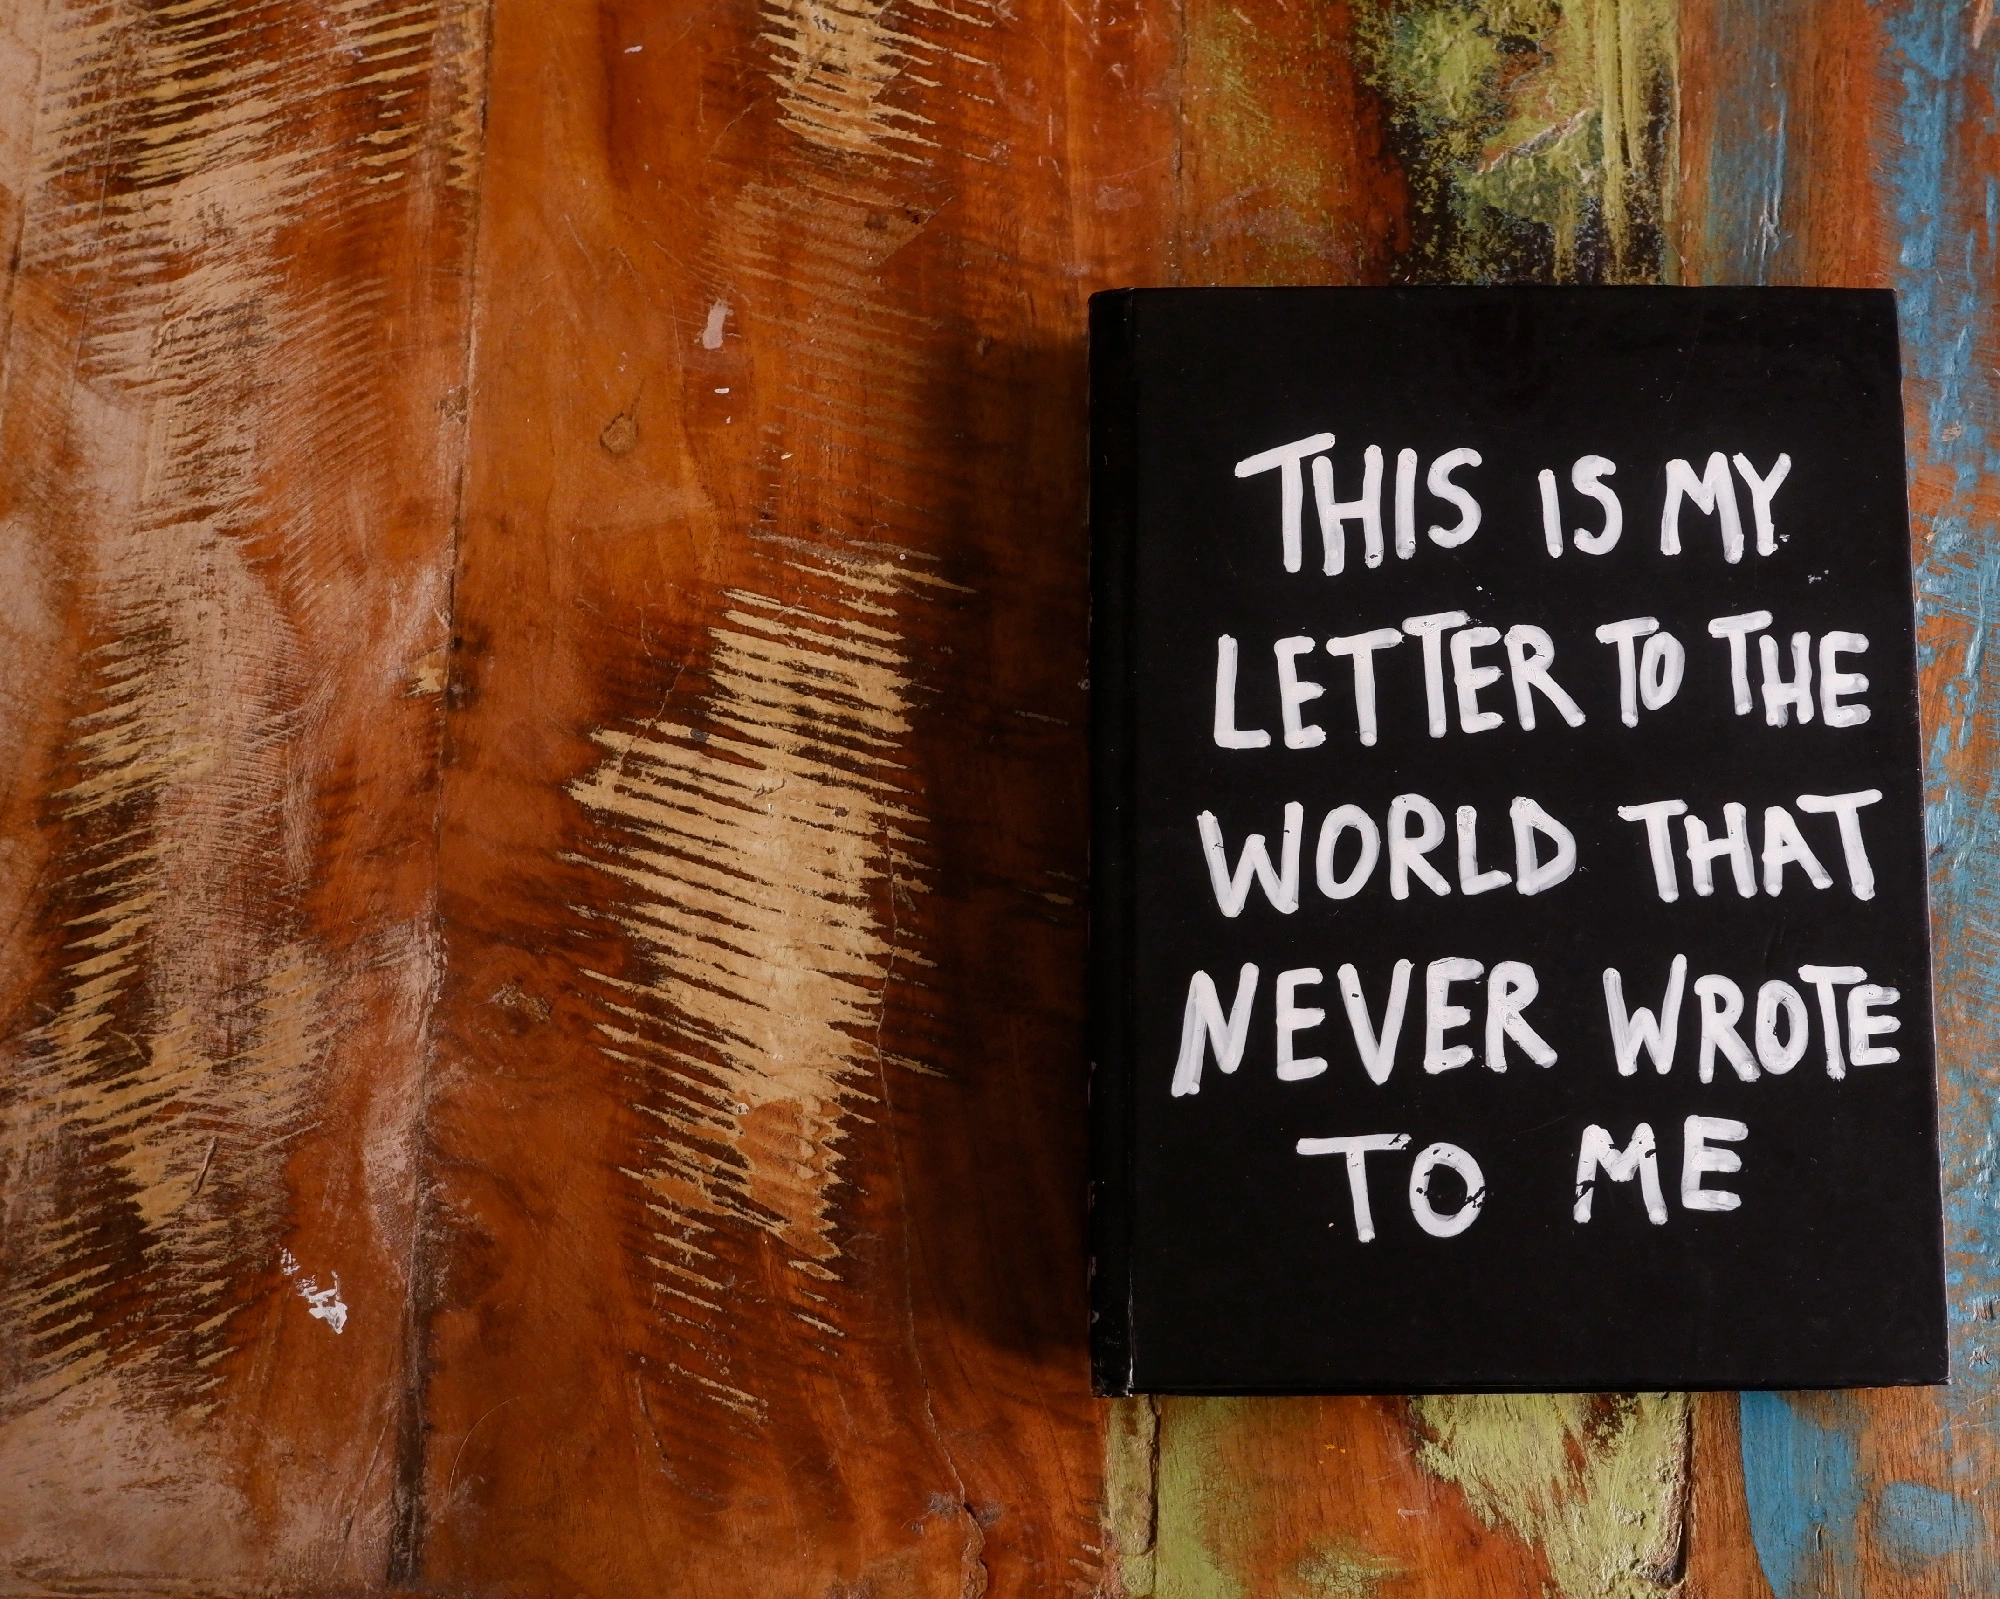 THIS IS MY
LETTER TO THE
WORLD THAT
NEVER WROTE
TO ME